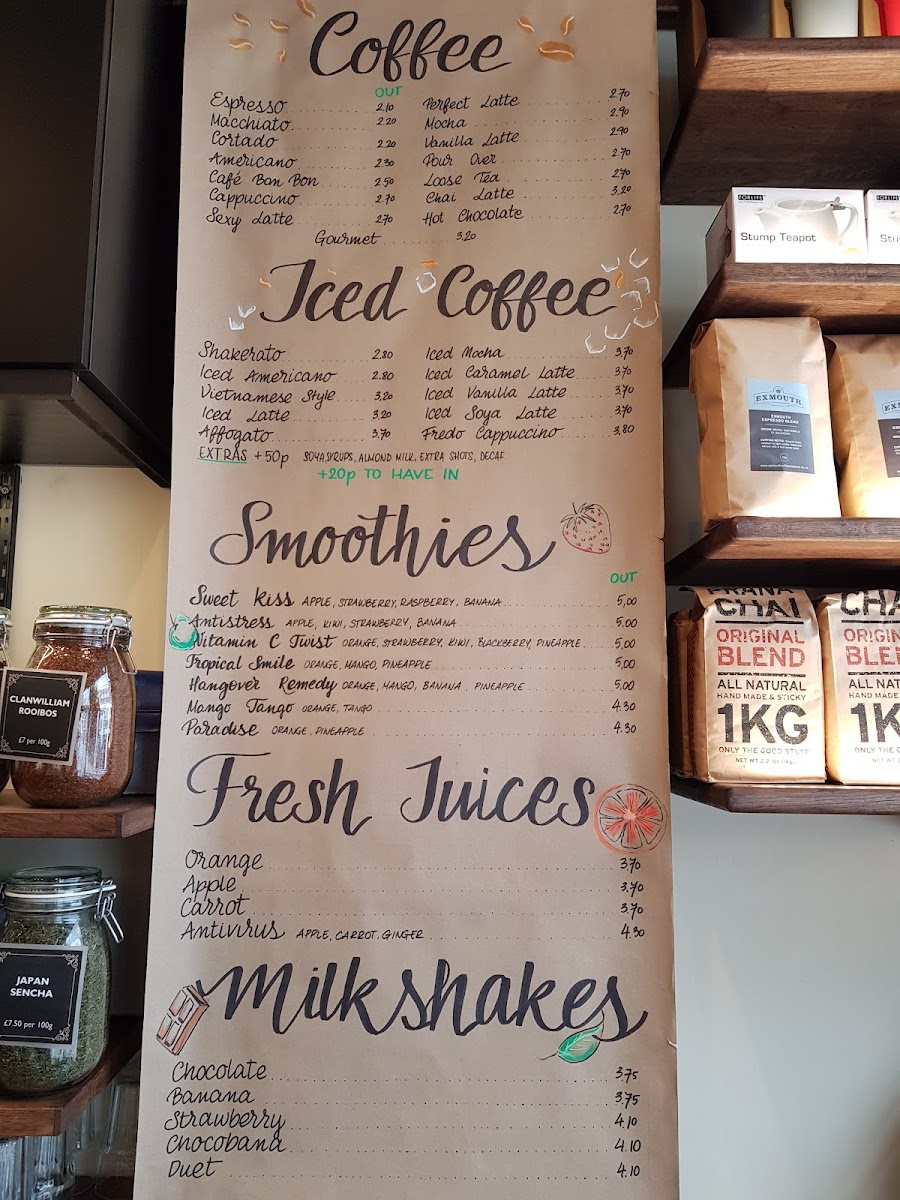 Coffee
OUT
Espresso 2.10
Macchiato 2.20
Cortado 2.20
Americano 2.30
Café Bon Bon 2.50
Cappuccino 2.70
Sexy Latte 2.70
Perfect Latte 2.70
Mocha 2.90
Vanilla Latte 2.90
Pour Over 2.70
Loose Tea 2.70
Chai Latte 3.20
Hot Chocolate 2.70
Gourmet 3.20
Iced Coffee
Shakerato 2.80
Iced Americano 2.80
Vietnamese Style 3.20
Iced Latte 3.20
Affogato 3.70
Iced Mocha 3.70
Iced Caramel Latte 3.70
Iced Vanilla Latte 3.70
Iced Soya Latte 3.70
Fredo Cappuccino 3.80
EXTRAS +50p SOYA, SYRUPS, ALMOND MILK, EXTRA SHOTS, DECAF
+20p TO HAVE IN
Smoothies
OUT
Sweet Kiss APPLE, STRAWBERRY, RASPBERRY, BANANA 5,00
Antistress APPLE, KIWI, STRAWBERRY, BANANA 5.00
Vitamin C Twist ORANGE, STRAWBERRY, KIWI, BLACKBERRY, PINEAPPLE 5.00
Tropical Smile ORANGE, MANGO, PINEAPPLE 5,00
Hangover Remedy ORANGE, MANGO, BANANA, PINEAPPLE 5,00
Mango Tango ORANGE, TANGO 4.30
Paradise ORANGE, PINEAPPLE 4.30
Fresh Juices
Orange 3.70
Apple 3.70
Carrot 3.70
Antivirus APPLE, CARROT, GINGER 4.30
Milkshakes
Chocolate 3.75
Banana 3.75
Strawberry 4.10
Chocobana 4.10
Duet 4.10
CLANWILLIAM
ROOIBOS
£7 per 100g
JAPAN
SENCHA
£7.50 per 100g
FORLIFE
Stump Teapot
FORLIFE
Stu
EXMOUTH
EXMOUTH
ESPRESSO BLEND
EXM
CHAI
ORIGINAL
BLEND
ALL NATURAL
HAND MADE & STICKY
1KG
ONLY THE GOOD STUFF
NET WT 2.2 lbs (1kg)
CHA
ORIGIN
BLE
ALL NAT
HAND MADE
1K
ONLY THE GO
NET WT 2.2